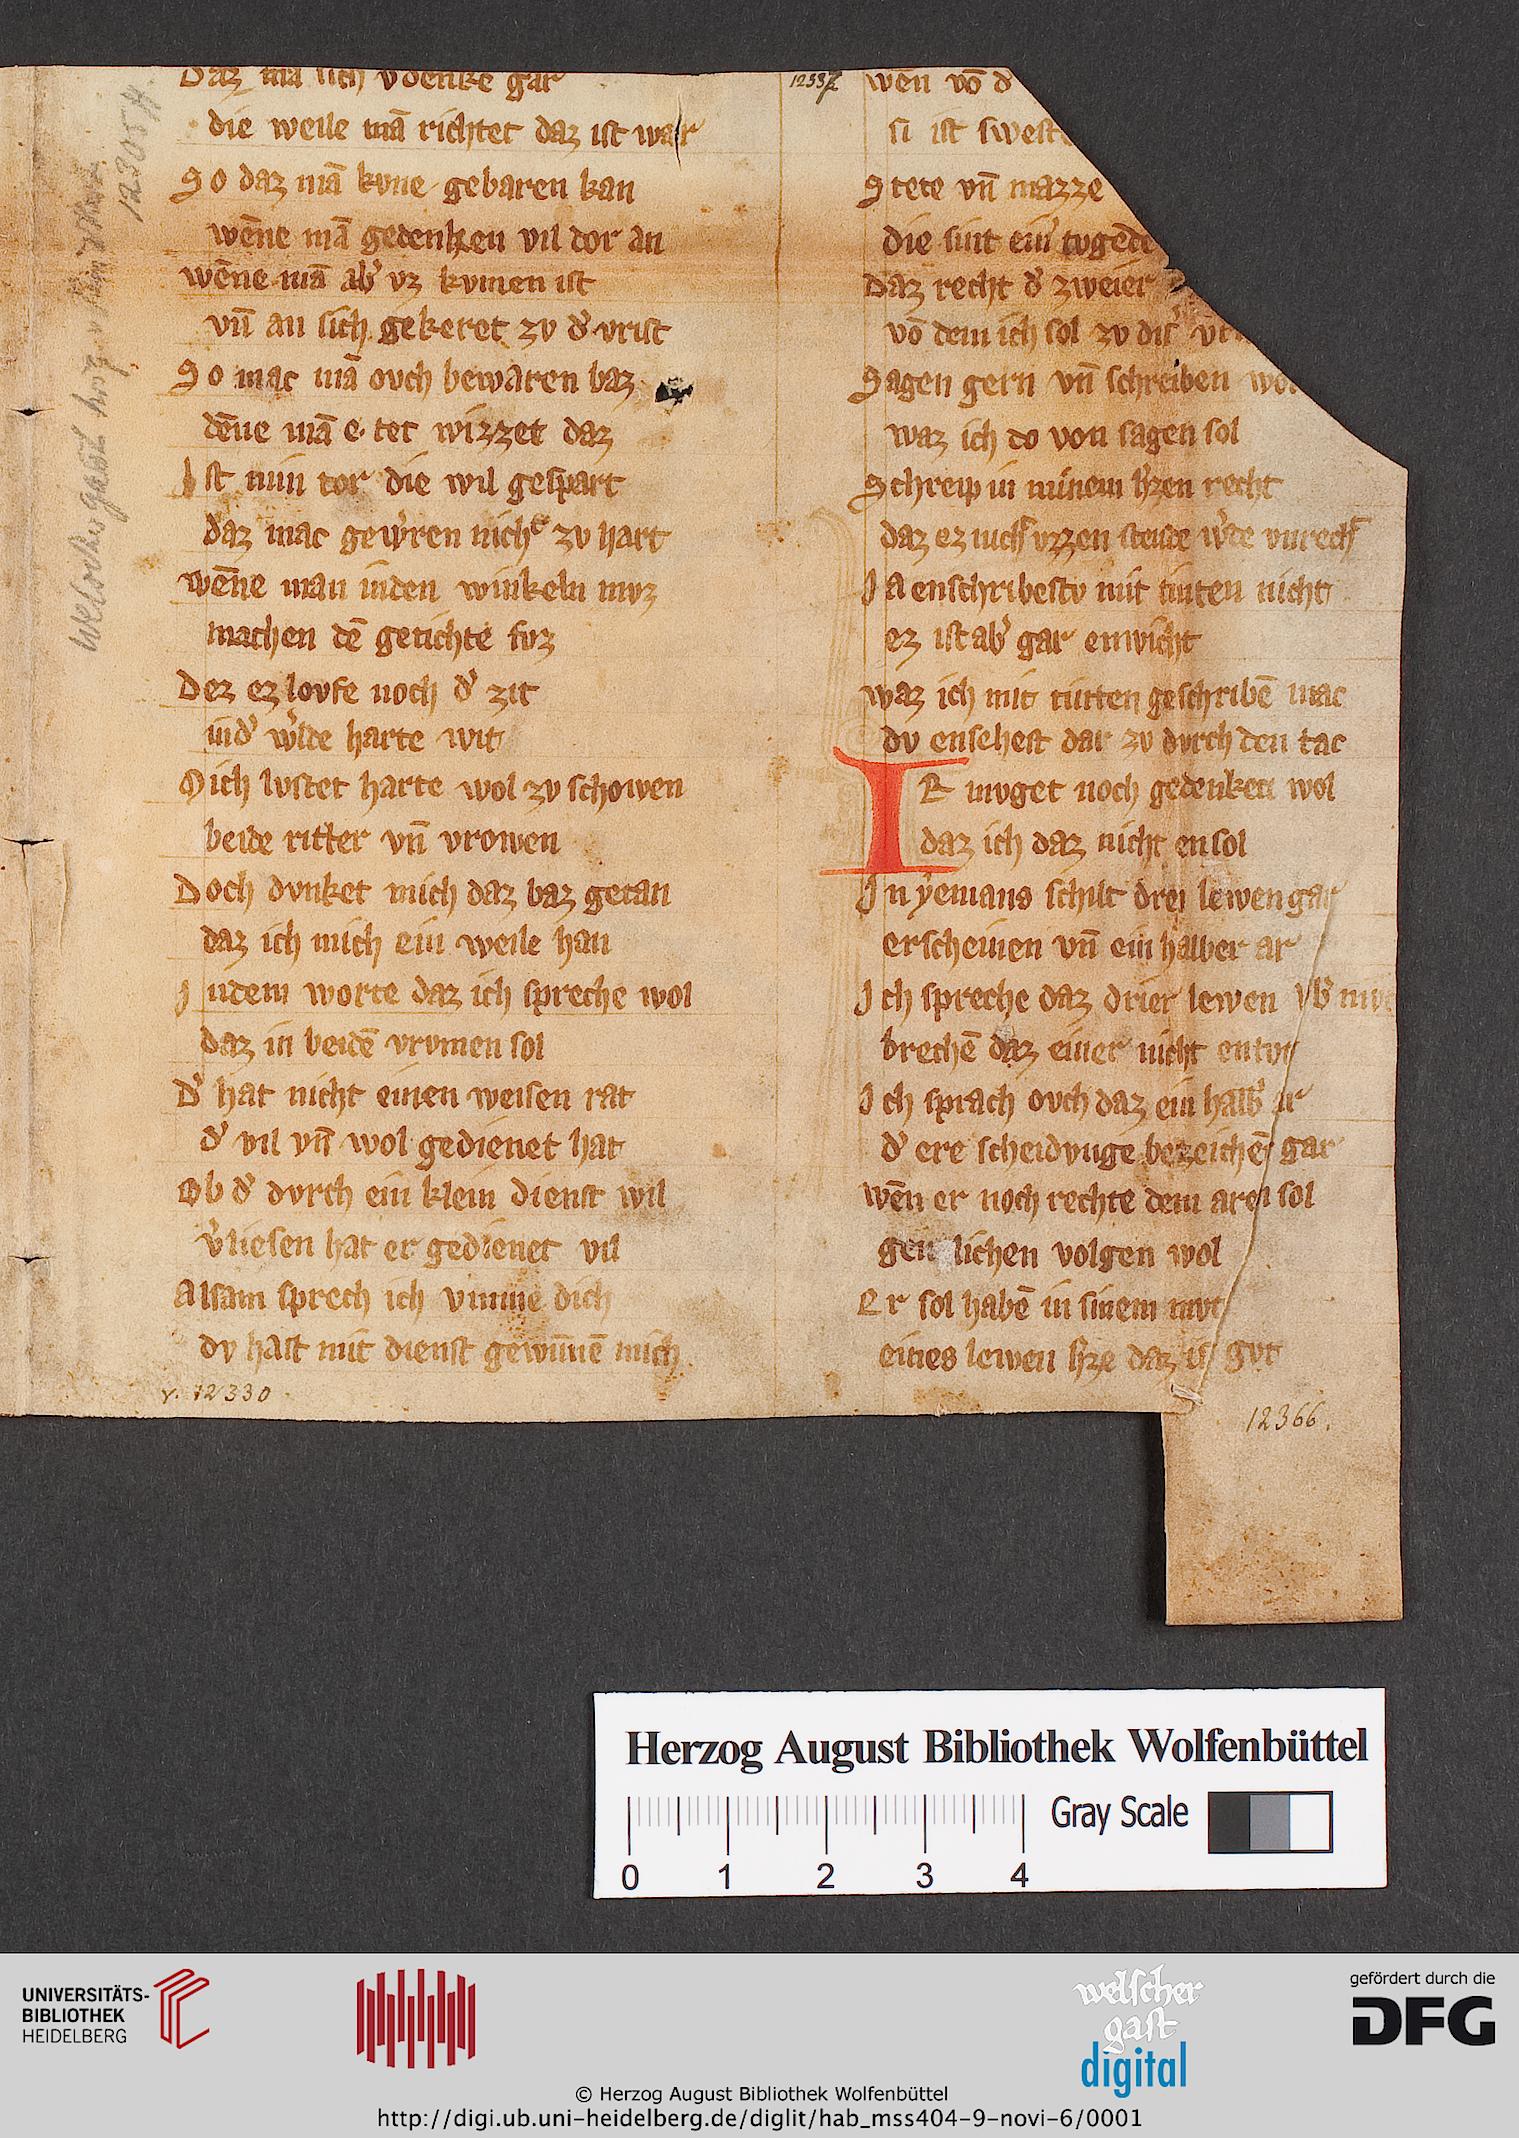 Daz mā sich vdenke gar
die weile mā richtet daz ist war
So daz mā kvne gebaren kan
wēne mā gedenken vil dor an
wēne mā ab' vz kvmen ist
vn̄ an sich gekeret zv d' vrist
So mac mā ovch bewaren baz
dēne mā e tet wizzet daz
Ist min tor die wil gespart
daz mac gew'ren nicht zv hart
wēne man inden winkeln mvz
machen dē gerichte fvz
Dez ez lovfe noch d' zit
nid' w'lde harte wit
Mich lvstet harte wol zv schowen
beide ritter vn̄ vrowen
Doch dvnket mich daz baz getan
daz ich mich ein weile han
Indem worte daz ich spreche wol
daz in beidē vrvmen sol
D' hat nicht einen weisen rat
d' vil vn̄ wol gedienet hat
Ob d' dvrch ein klein dienst wil
v'liesen hat er gedienet vil
Alsam sprech ich vmme dich
dv hast mit dienst gewinnē mich
v. 12330
12305 ff
12337
wen vō d
si ist swest
Stete vn̄ mazze
die sint ein' tvgēde
Daz recht d' zweier
vō dem ich sol zv dis' vr
Sagen gern vn̄ schreiben wo
waz ich do von sagen sol
Schreip in minem h'zen recht
daz ez nicht vzzen stende w'de vnrecht
Ja enschribestv mit tinten nicht
ez ist ab' gar enwicht
waz ich mit tinten geschribē mac
dv ensehest dar zv dvrch den tac
IR mvget noch gedenken wol
daz ich daz nicht ensol
In yemans schilt drei lewen gar
erscheinen vn̄ ein halber ar
Ich spreche daz drier lewen vb' mvt
brechē daz einer nicht entvt
Ich sprach ovch daz ein halb' ar
d' ere scheidvnge bezeichēt gar
wēn er noch rechte dem aren sol
gen lichen volgen wol
Er sol habē in sinem mvt
eines lewen h'ze daz ist gvt
12366.
Herzog August Bibliothek Wolfenbüttel
Gray Scale
0 1 2 3 4
UNIVERSITÄTS-
BIBLIOTHEK
HEIDELBERG
welscher
gast
digital
gefördert durch die
DFG
© Herzog August Bibliothek Wolfenbüttel
http://digi.ub.uni-heidelberg.de/diglit/hab_mss404-9-novi-6/0001